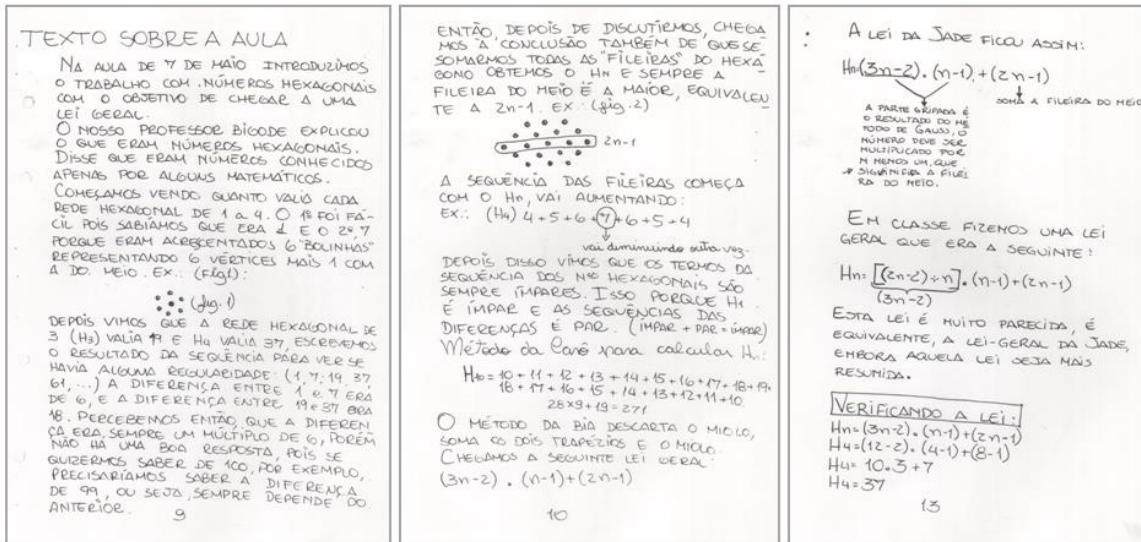 TEXTO SOBRE A AULA
NA AULA DE 7 DE MAIO INTRODUZIMOS
O TRABALHO COM NÚMEROS HEXAGONAIS
COM O OBJETIVO DE CHEGAR A UMA
LEI GERAL.
O NOSSO PROFESSOR BIGODE EXPLICOU
O QUE ERAM NÚMEROS HEXAGONAIS.
DISSE QUE ERAM NÚMEROS CONHECIDOS
APENAS POR ALGUNS MATEMÁTICOS.
COMEÇAMOS VENDO QUANTO VALIA CADA
REDE HEXAGONAL DE 1 a 4. O 1º FOI FÁ-
CIL POIS SABÍAMOS QUE ERA 1 E O 2º, 7
PORQUE ERAM ACRECENTADOS 6 "BOLINHAS"
REPRESENTANDO 6 VÉRTICES MAIS 1 COM
A DO MEIO. EX.: (Fig 1):
(fig. 1)
DEPOIS VIMOS QUE A REDE HEXAGONAL DE
3 (H3) VALIA 19 E H4 VALIA 37, ESCREVEMOS
O RESULTADO DA SEQUÊNCIA PARA VER SE
HAVIA ALGUMA REGULARIDADE: (1, 7, 19, 37
61, ...) A DIFERENÇA ENTRE 1 e 7 ERA
DE 6, E A DIFERENÇA ENTRE 19 e 37 ERA
18. PERCEBEMOS ENTÃO, QUE A DIFEREN
ÇA ERA SEMPRE UM MÚLTIPLO DE 6, PORÉM
NÃO HÁ UMA BOA RESPOSTA, POIS SE
QUIZERMOS SABER DE 100, POR EXEMPLO,
PRECISARÍAMOS SABER A DIFERENÇA
DE 99, OU SEJA, SEMPRE DEPENDE DO
ANTERIOR.
9
ENTÃO, DEPOIS DE DISCUTIRMOS, CHEGA
MOS À CONCLUSÃO TAMBÉM DE QUE SE
SOMARMOS TODAS AS "FILEIRAS" DO HEXÁ
GONO OBTEMOS O HN E SEMPRE A
FILEIRA DO MEIO É A MAIOR, EQUIVALEN
TE A 2n-1. EX.: (fig. 2)
2n-1
A SEQUÊNCIA DAS FILEIRAS COMEÇA
COM O Hn, VAI AUMENTANDO:
EX.: (H4) 4+5+6+7+6+5+4
vai diminuindo outra vez.
DEPOIS DISSO VIMOS QUE OS TERMOS DA
SEQUÊNCIA DOS Nºs HEXAGONAIS SÃO
SEMPRE ÍMPARES. ISSO PORQUE H1
É ÍMPAR E AS SEQUÊNCIAS DAS
DIFERENÇAS É PAR. (ÍMPAR + PAR = ÍMPAR)
Método da para calcular Hn:
H10 = 10 + 11 + 12 + 13 + 14 + 15 + 16 + 17 + 18 + 19 +
18 + 17 + 16 + 15 + 14 + 13 + 12 + 11 + 10
28 x 9 + 19 = 271
O MÉTODO DA BIA DESCARTA O MIOLO,
SOMA OS DOIS TRAPÉZIOS E O MIOLO.
CHEGAMOS A SEGUINTE LEI GERAL:
(3n-2) . (n-1) + (2n-1)
10
A LEI DA JADE FICOU ASSIM:
Hn=(3n-2) . (n-1) + (2n-1)
SOMA A FILEIRA DO MEIO
A PARTE GRIFADA É
O RESULTADO DO MÉ
TODO DE GAUSS, O
NÚMERO DEVE SER
MULTIPLICADO POR
N MENOS UM, QUE
SIGUINIFICA A FILEI
RA DO MEIO.
EM CLASSE FIZEMOS UMA LEI
GERAL QUE ERA A SEGUINTE:
Hn= [(2n-2)+n] . (n-1) + (2n-1)
(3n-2)
ESTA LEI É MUITO PARECIDA, É
EQUIVALENTE, A LEI-GERAL DA JADE,
EMBORA AQUELA LEI SEJA MAIS
RESUMIDA.
VERIFICANDO A LEI:
Hn=(3n-2) . (n-1) + (2n-1)
H4=(12-2) . (4-1) + (8-1)
H4= 10.3 + 7
H4= 37
13